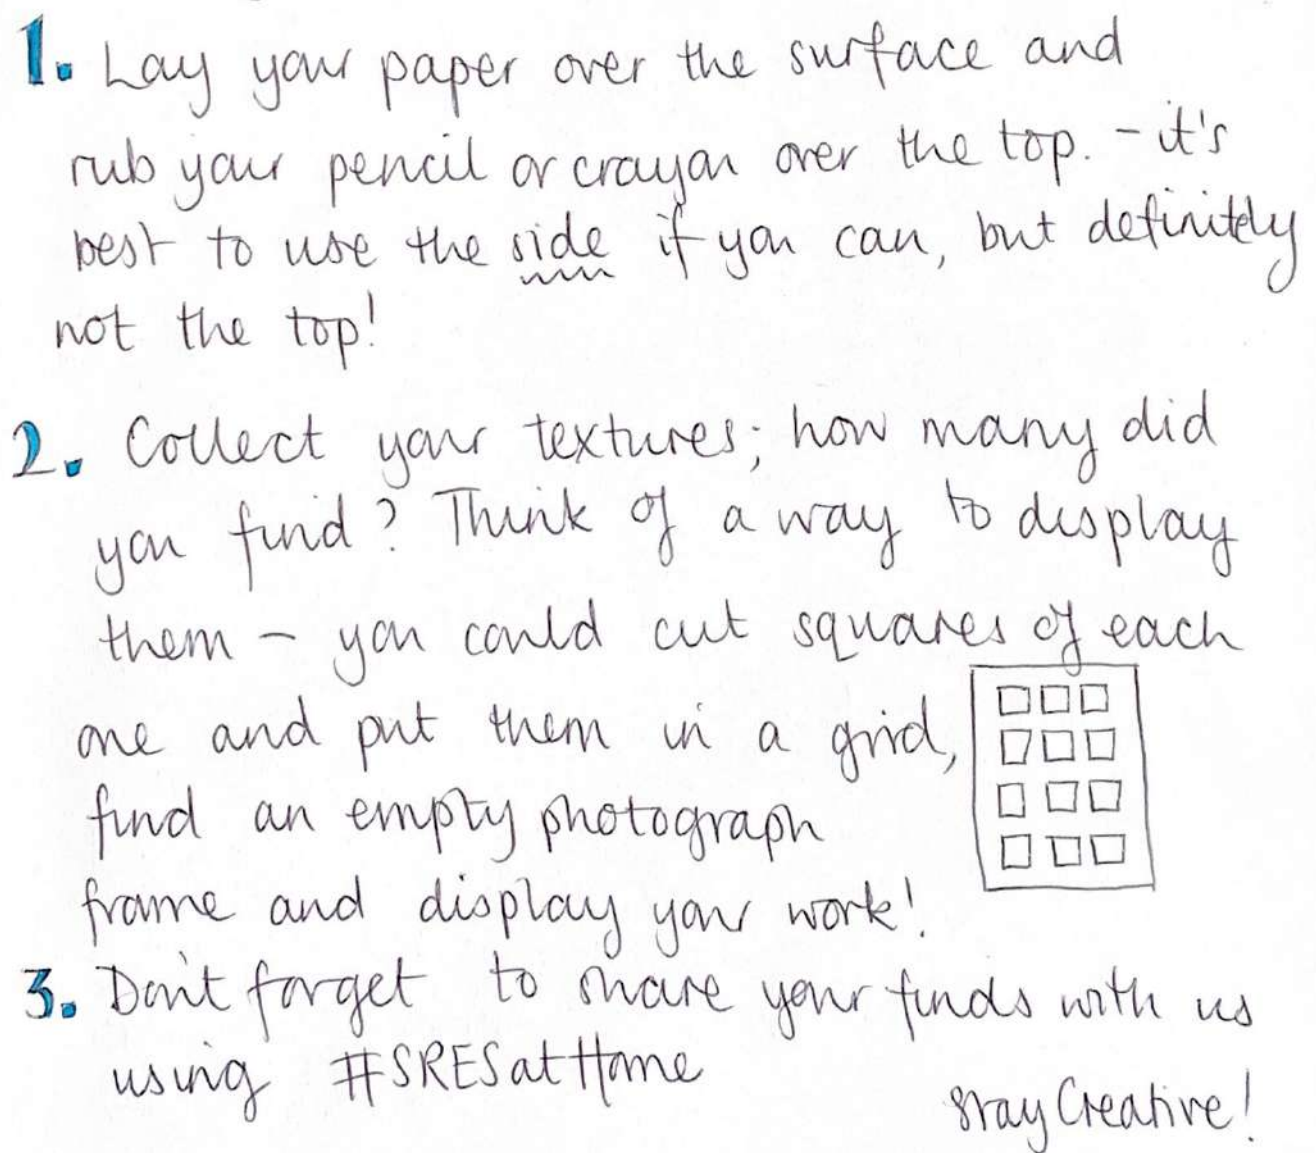 1. Lay your paper over the surface and
rub your pencil or crayon over the top. - it's
best to use the side if you can, but definitely
not the top!
2. Collect your textures; how many did
you find? Think of a way to display
them - you could cut squares of each
one and put them in a grid,
find an empty photograph
frame and display your work!
3. Don't forget to share your finds with us
using #SRESatHome
Stay Creative!